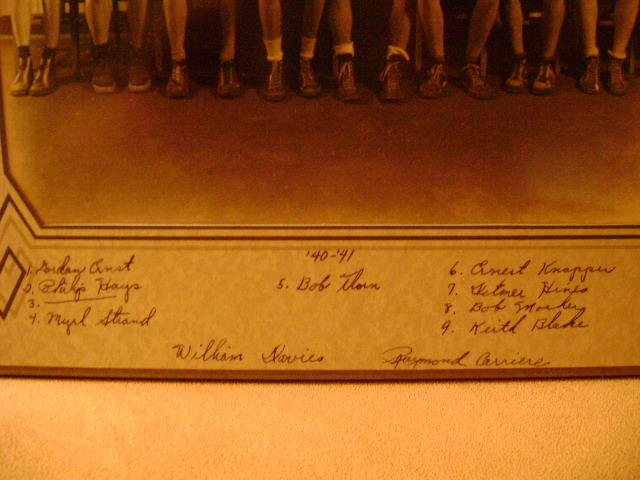 '40-'41
1. Gordan Ernst
2. Philip Hays
3.
4. Myrl Strand
5. Bob Thorn
6. Ernest Knapper
7. Hines
8. Bob
9. Keith Blake
William Davies
Raymond Carriere